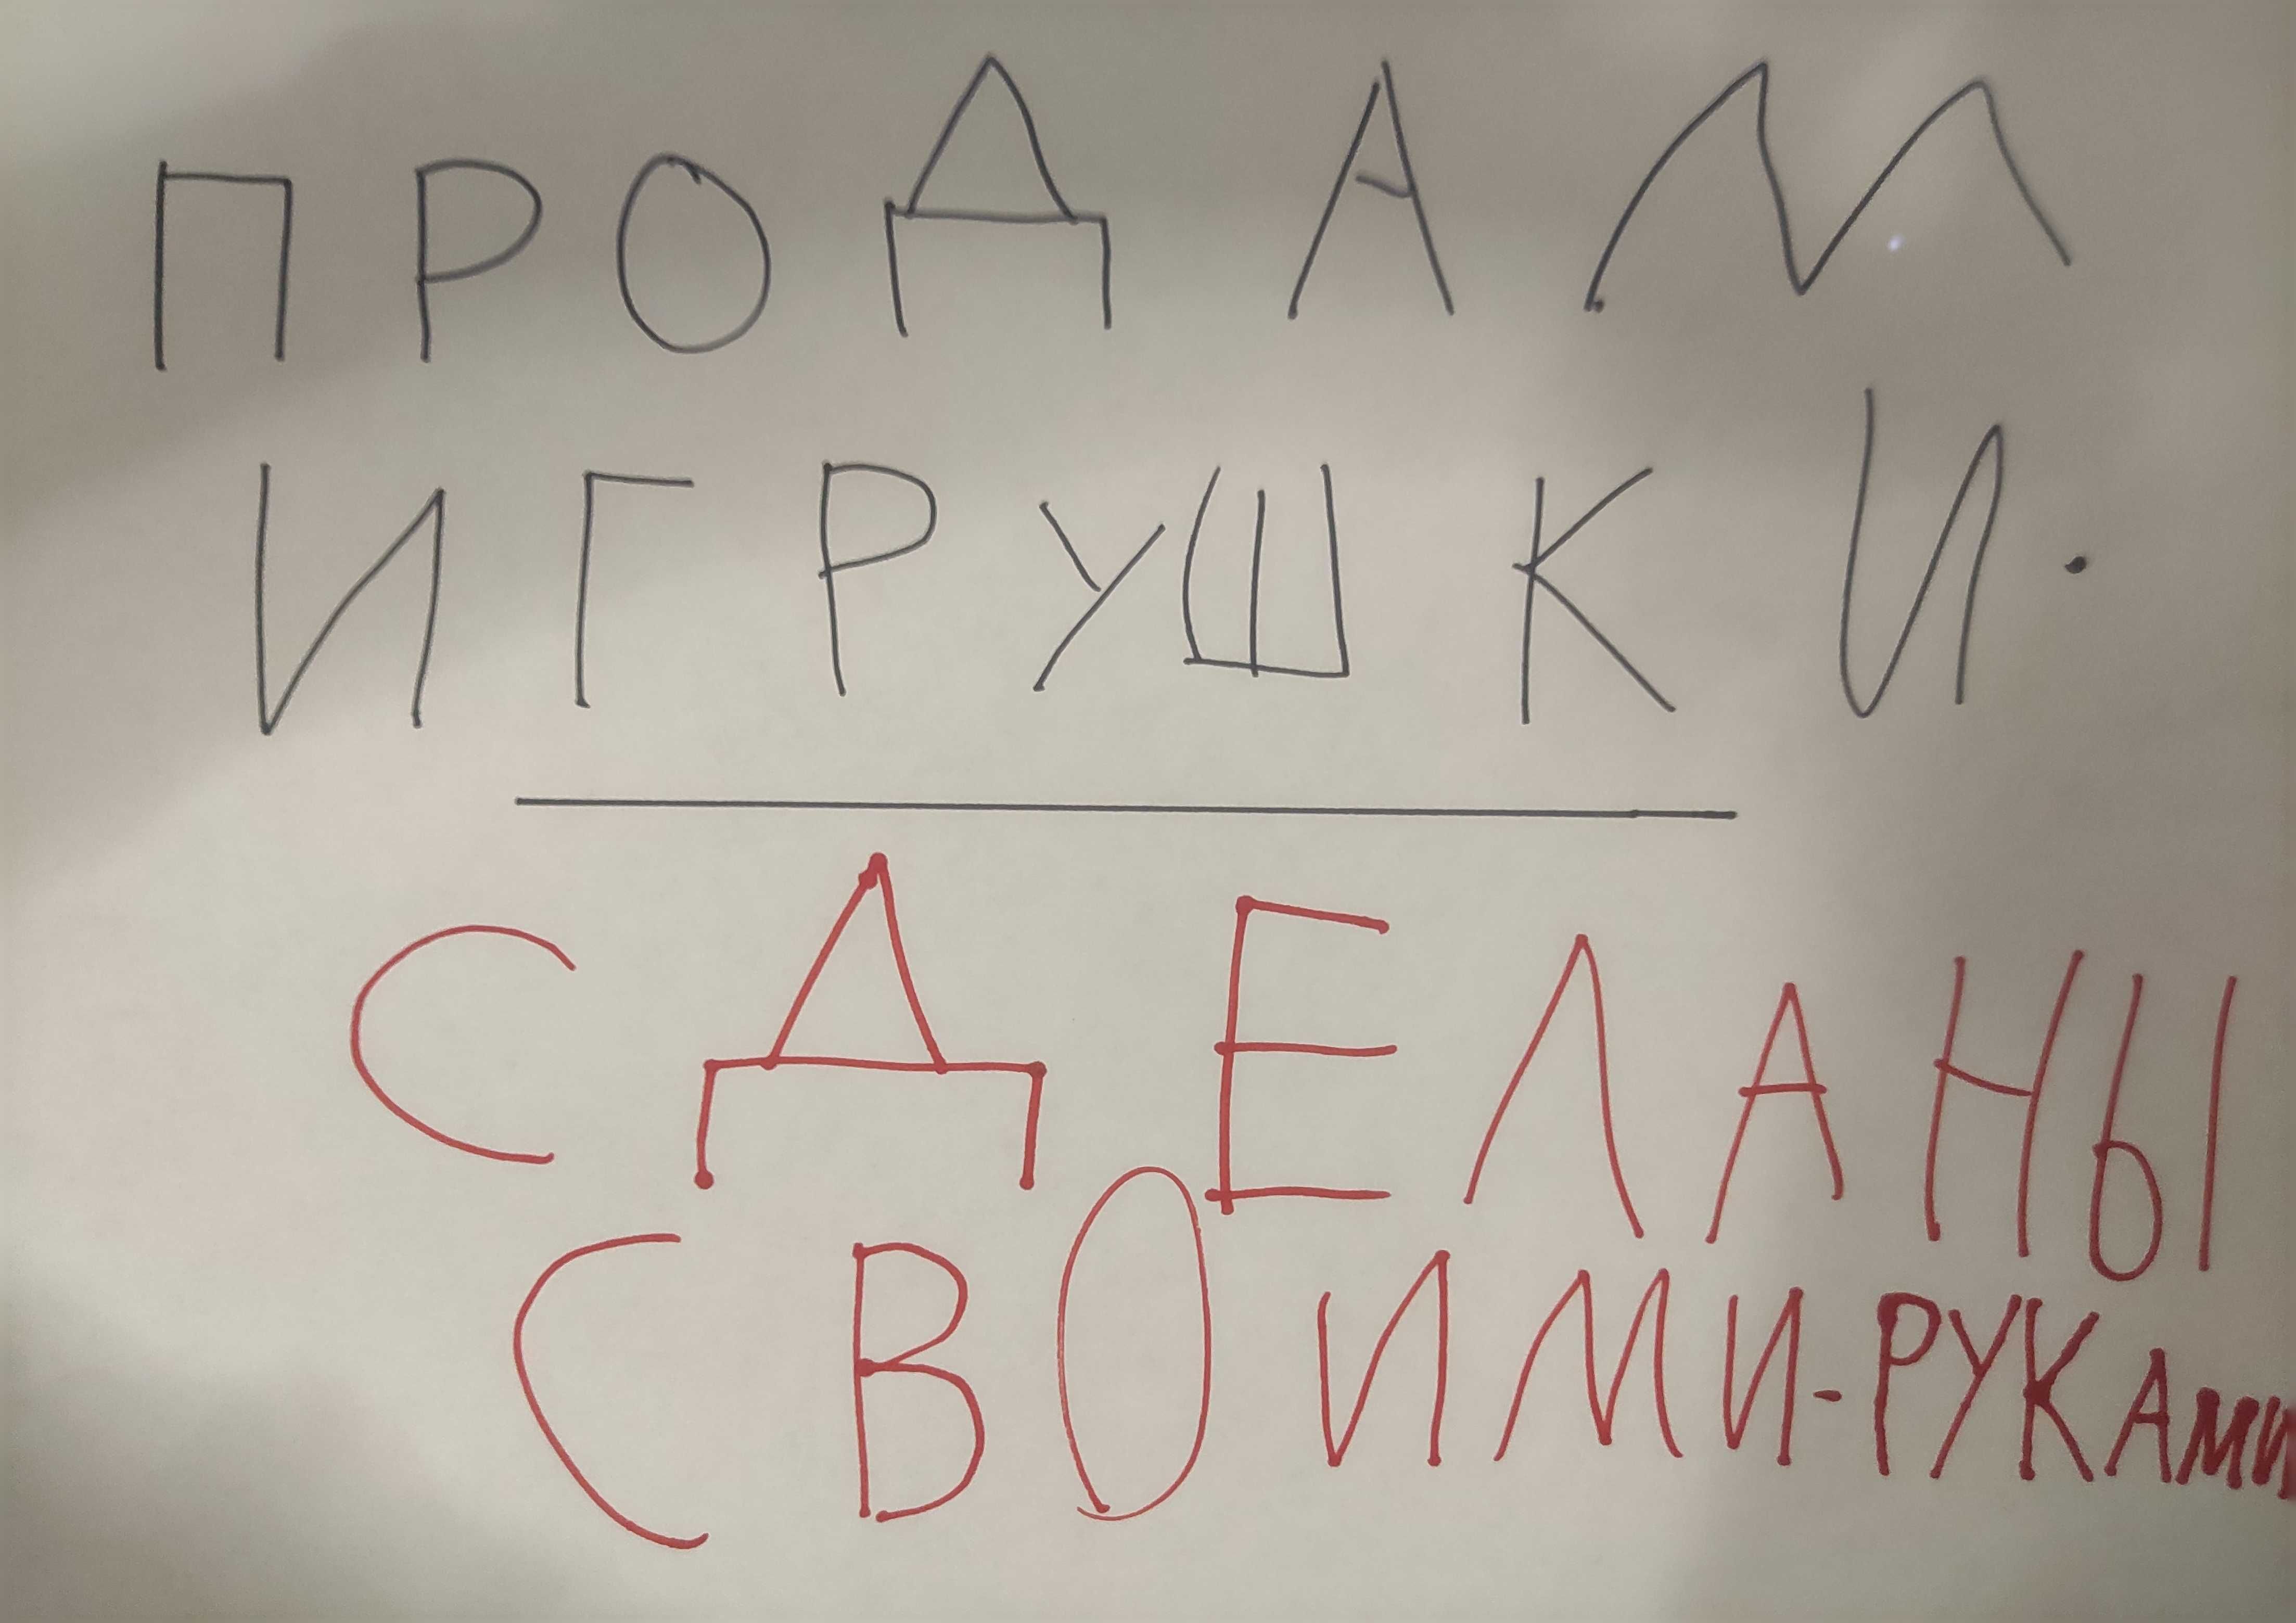 ПРОДАМ
ИГРУШКИ.
СДЕЛАНЫ
СВОИМИ-РУКАМИ